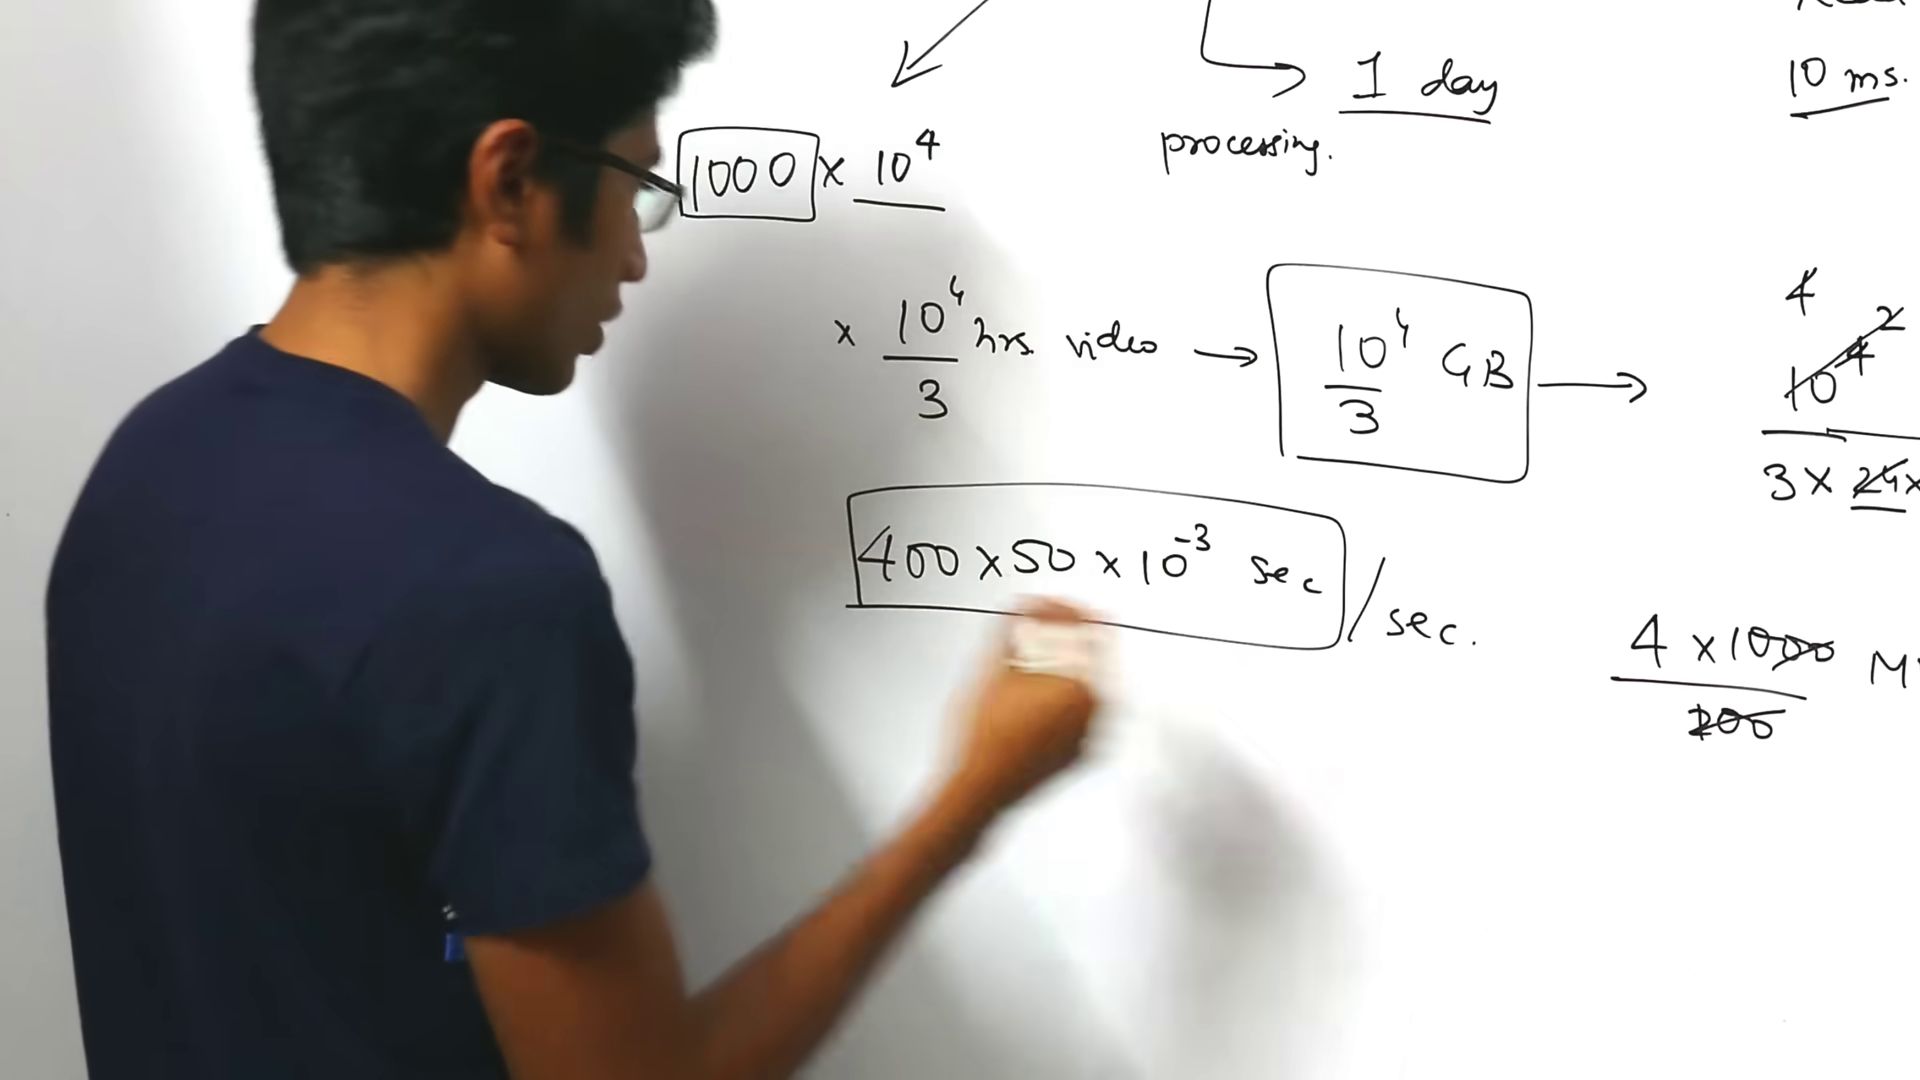 1 day
10 ms.
processing.
1000 x 10^4
x 10^4/3 hrs. video → 10^4/3 GB →
4
10^4 2
3 x 24x
400 x 50 x 10^-3 sec / sec.
4 x 1000
200